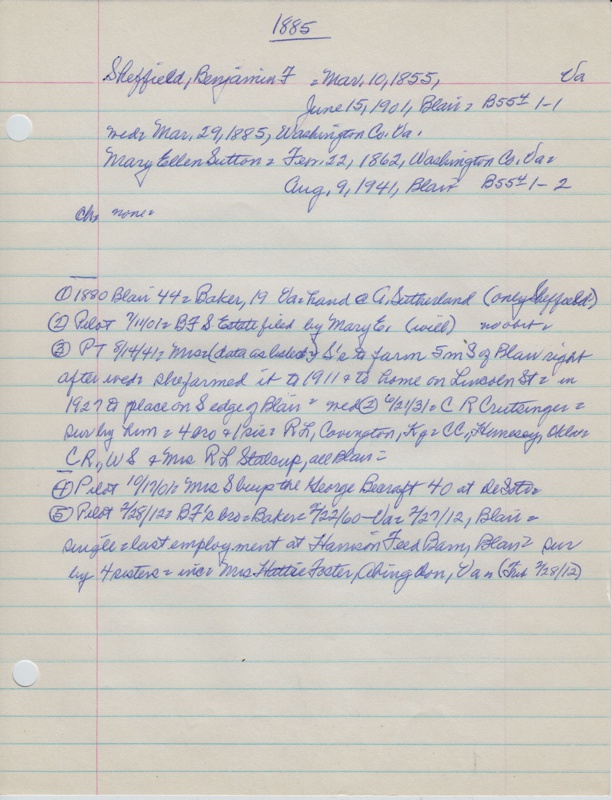 1885
Sheffield, Benjamin F = Mar. 10, 1855, Va
June 15, 1901, Blair = B55 1-1
wed = Mar. 29, 1885, Washington Co. Va.
Mary Ellen Sutton = Feb. 22, 1862, Washington Co. Va =
Aug. 9, 1941, Blair B55 1-2
ch = none =
① 1880 Blair 44 = Baker, 19 Va = hand @ A. Sutherland (only Sheffield)
② Pilot 7/11/01 = B F S Estate filed by Mary E. (will) no obit =
③ PT 8/14/41 = Mrs = (data as listed) S's to farm 5 m S of Blair right
after wed = she farmed it to 1911 & to home on Lincoln St = in
1927 to place on S edge of Blair = wed ② 6/21/31 = C R Crutsinger =
sur by him = 4 bro & 1 sis = R L, Covington, Ky = CC, Hennesey, Okla =
C R., W S & Mrs R L Stalcup, all Blair =
④ Pilot 10/17/01 = Mrs S buys the George Beacraft 40 at DeSoto =
⑤ Pilot 2/28/12 = B F's bro = Baker = 2/22/60 - Va = 2/27/12, Blair =
single = last employment at Harrison Feed Barn, Blair = sur
by 4 sisters = inc = Mrs Hattie Foster, Abingdon, Va = (Trib 2/28/12)